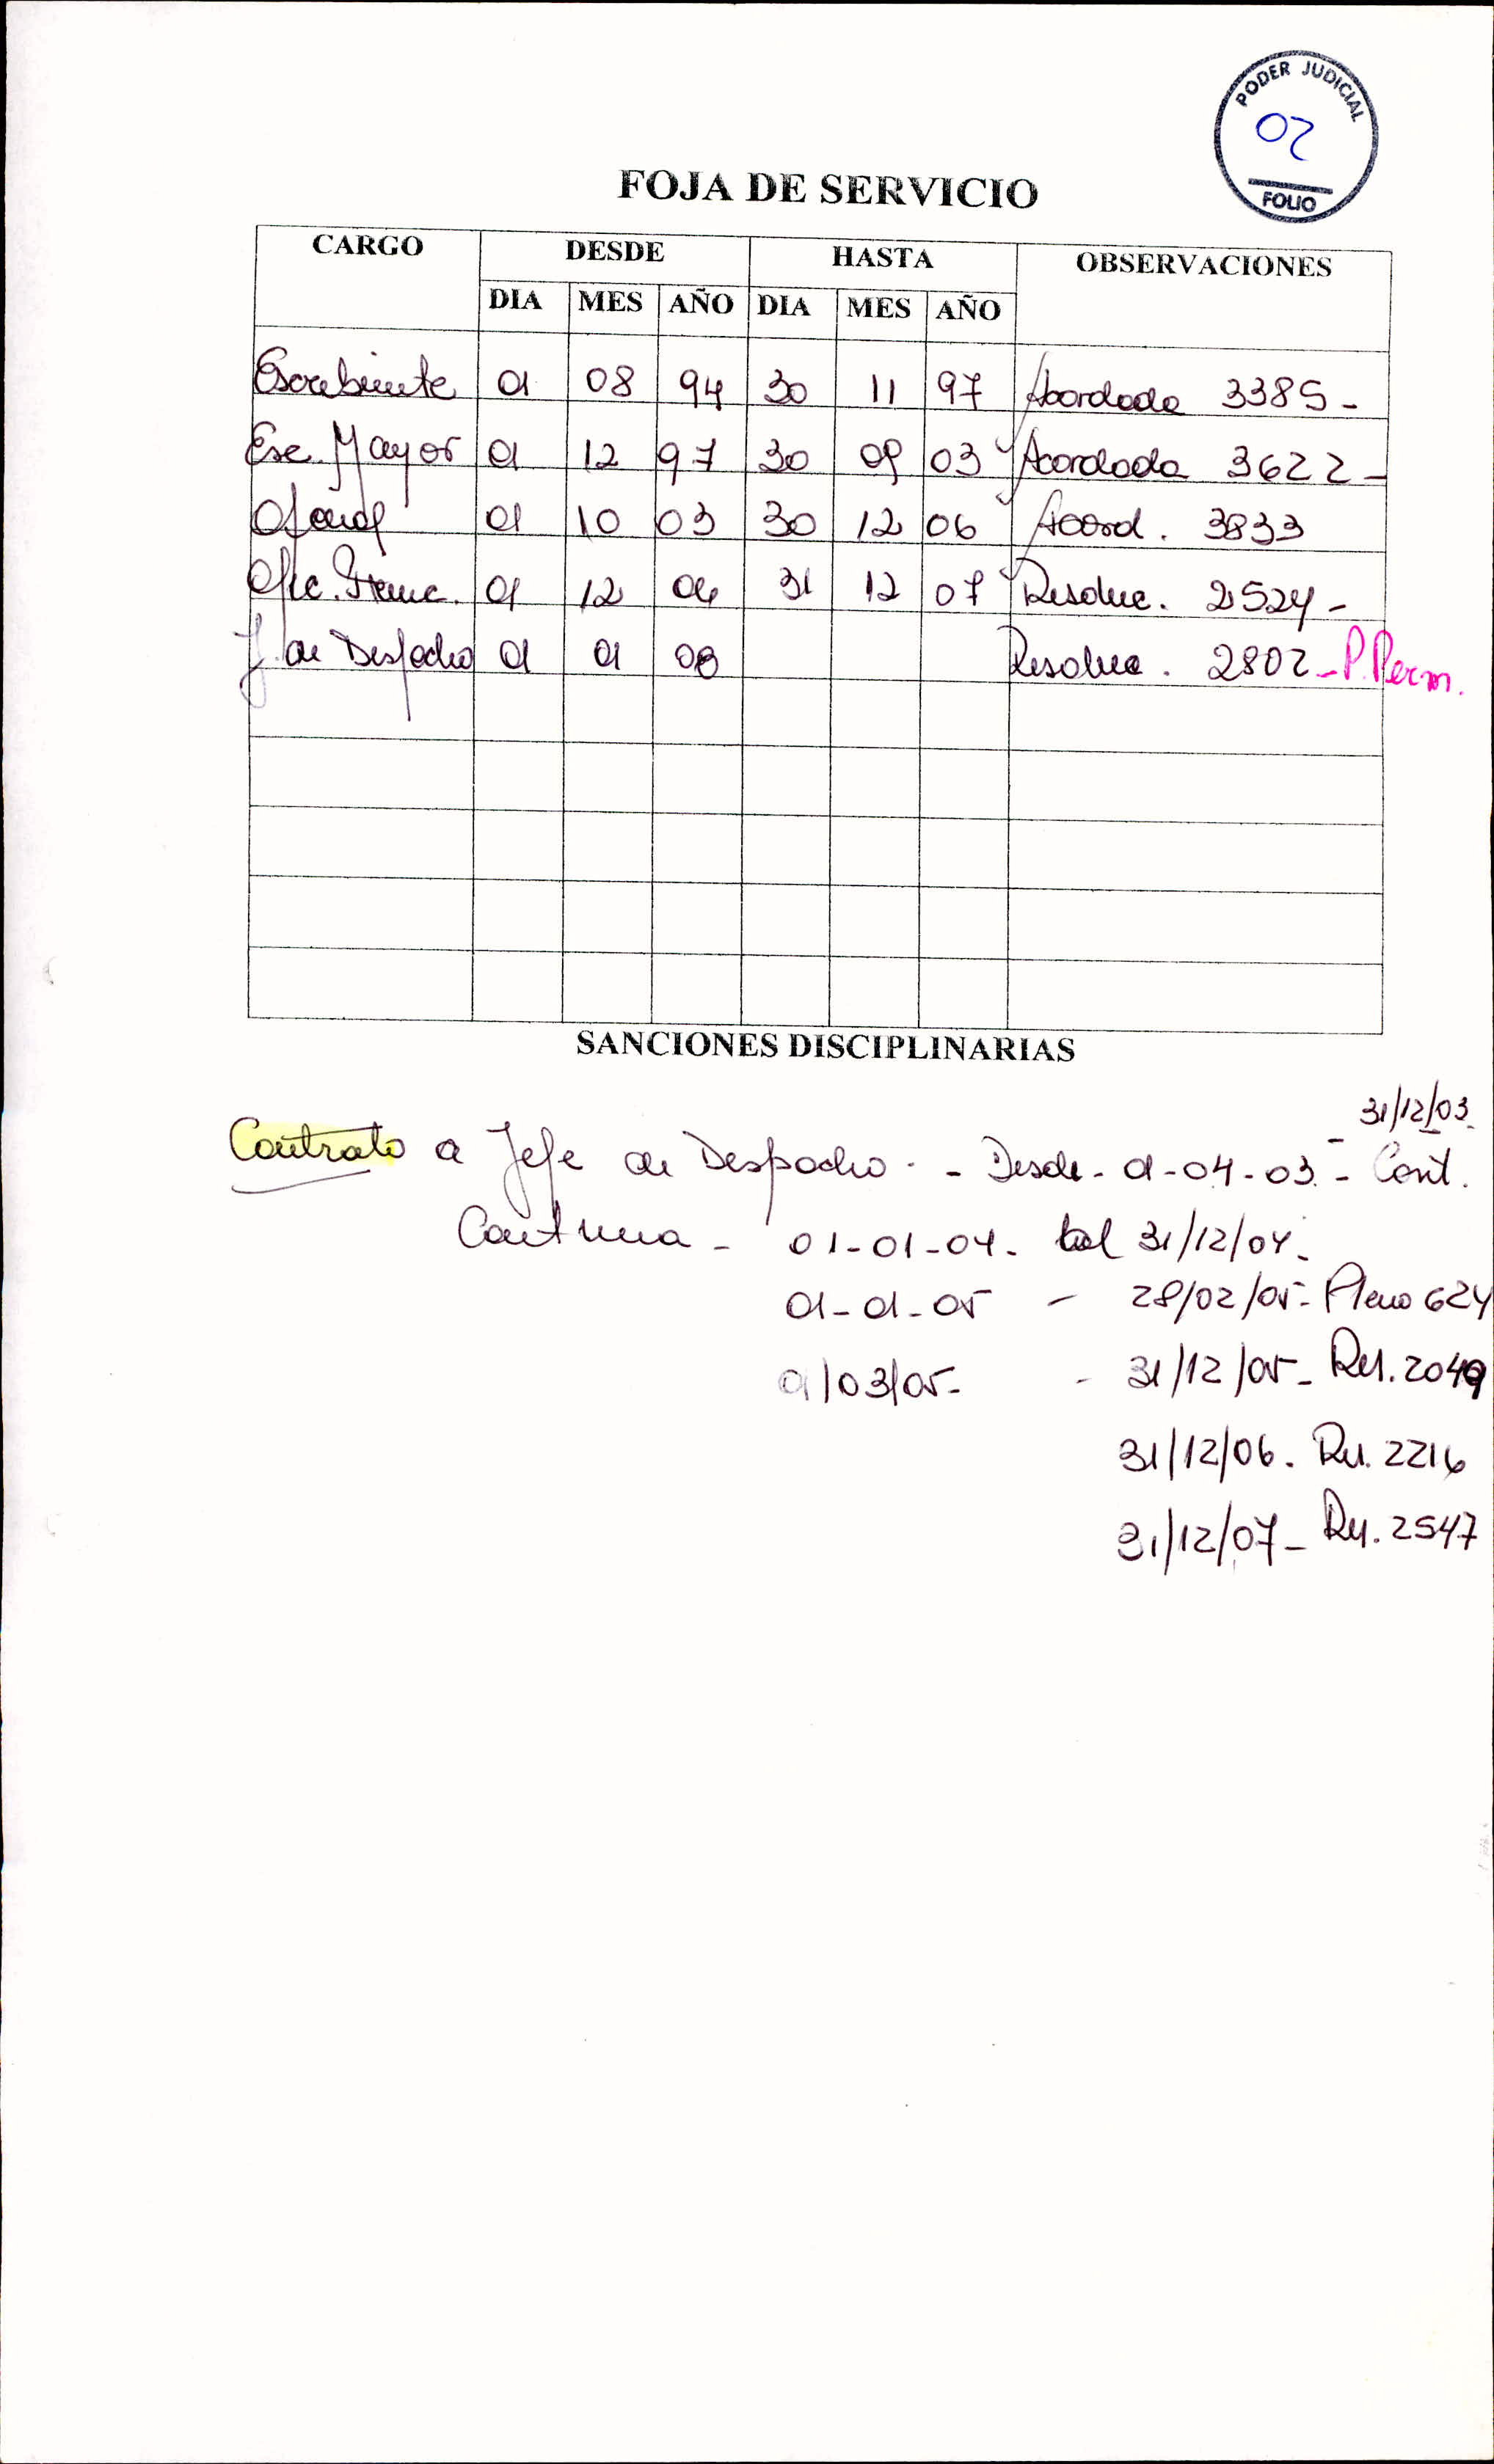 PODER JUDICIAL
02
FOLIO
FOJA DE SERVICIO
CARGO DESDE HASTA OBSERVACIONES
DIA MES AÑO DIA MES AÑO
Escribiente 01 08 94 30 11 97 Acordada 3385-
Esc. Mayor 01 12 97 30 09 03 Acordada 3622-
Oficial 01 10 03 30 12 06 Acord. 3833
Ofic. 01 12 06 31 12 07 Resoluc. 2524-
J. de Despacho 01 01 08 Resoluc. 2802-P.Perm.
SANCIONES DISCIPLINARIAS
- 31/12/03.
Contrato a Jefe de Despacho. - Desde - 01-04-03. - Cont.
Continua - 01-01-04. al 31/12/04.
01-01-05 - 28/02/05- Pleno 624
01/03/05- - 31/12/05- Res. 2049
31/12/06. Res. 2216
31/12/07- Res. 2547